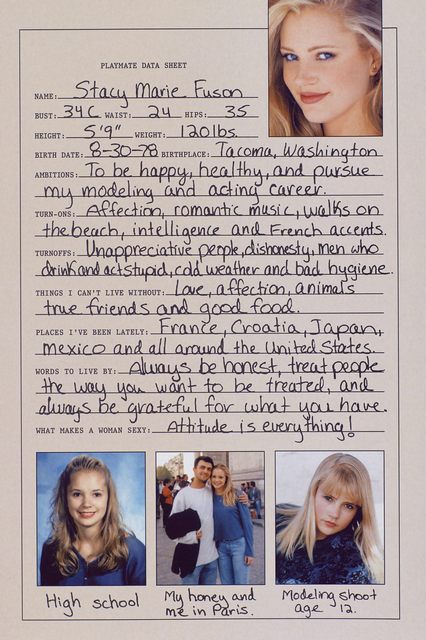 PLAYMATE DATA SHEET
NAME: Stacy Marie Fuson
BUST: 34C WAIST: 24 HIPS: 35
HEIGHT: 5'9" WEIGHT: 120 lbs.
BIRTH DATE: 8-30-78 BIRTHPLACE: Tacoma, Washington
AMBITIONS: To be happy, healthy, and pursue
my modeling and acting career.
TURN-ONS: Affection, romantic music, walks on
the beach, intelligence and French accents.
TURNOFFS: Unappreciative people, dishonesty, men who
drink and act stupid, cold weather and bad hygiene.
THINGS I CAN'T LIVE WITHOUT: Love, affection, animals
true friends and good food.
PLACES I'VE BEEN LATELY: France, Croatia, Japan,
Mexico and all around the United States.
WORDS TO LIVE BY: Always be honest, treat people
the way you want to be treated, and
always be grateful for what you have.
WHAT MAKES A WOMAN SEXY: Attitude is everything!
High school
My honey and
me in Paris.
Modeling shoot
age 12.